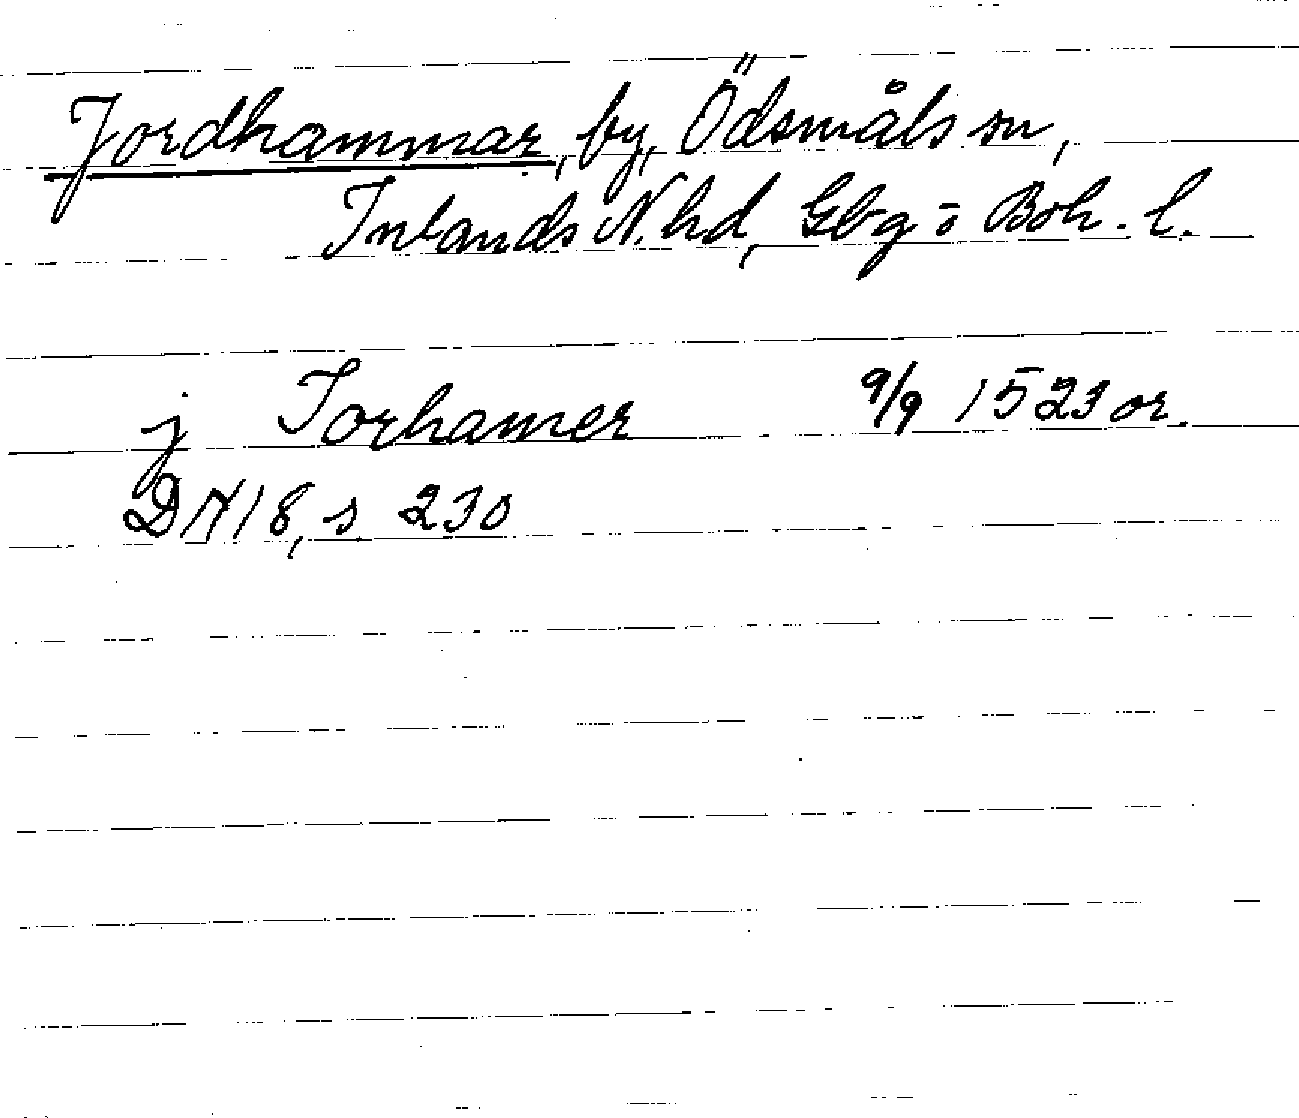 Jordhammar, by, Ödsmåls sn,
Inlands N. hd, Gbg o Boh. l.
j Iorhamer 9/9 1523 or.
DN 18, s. 230